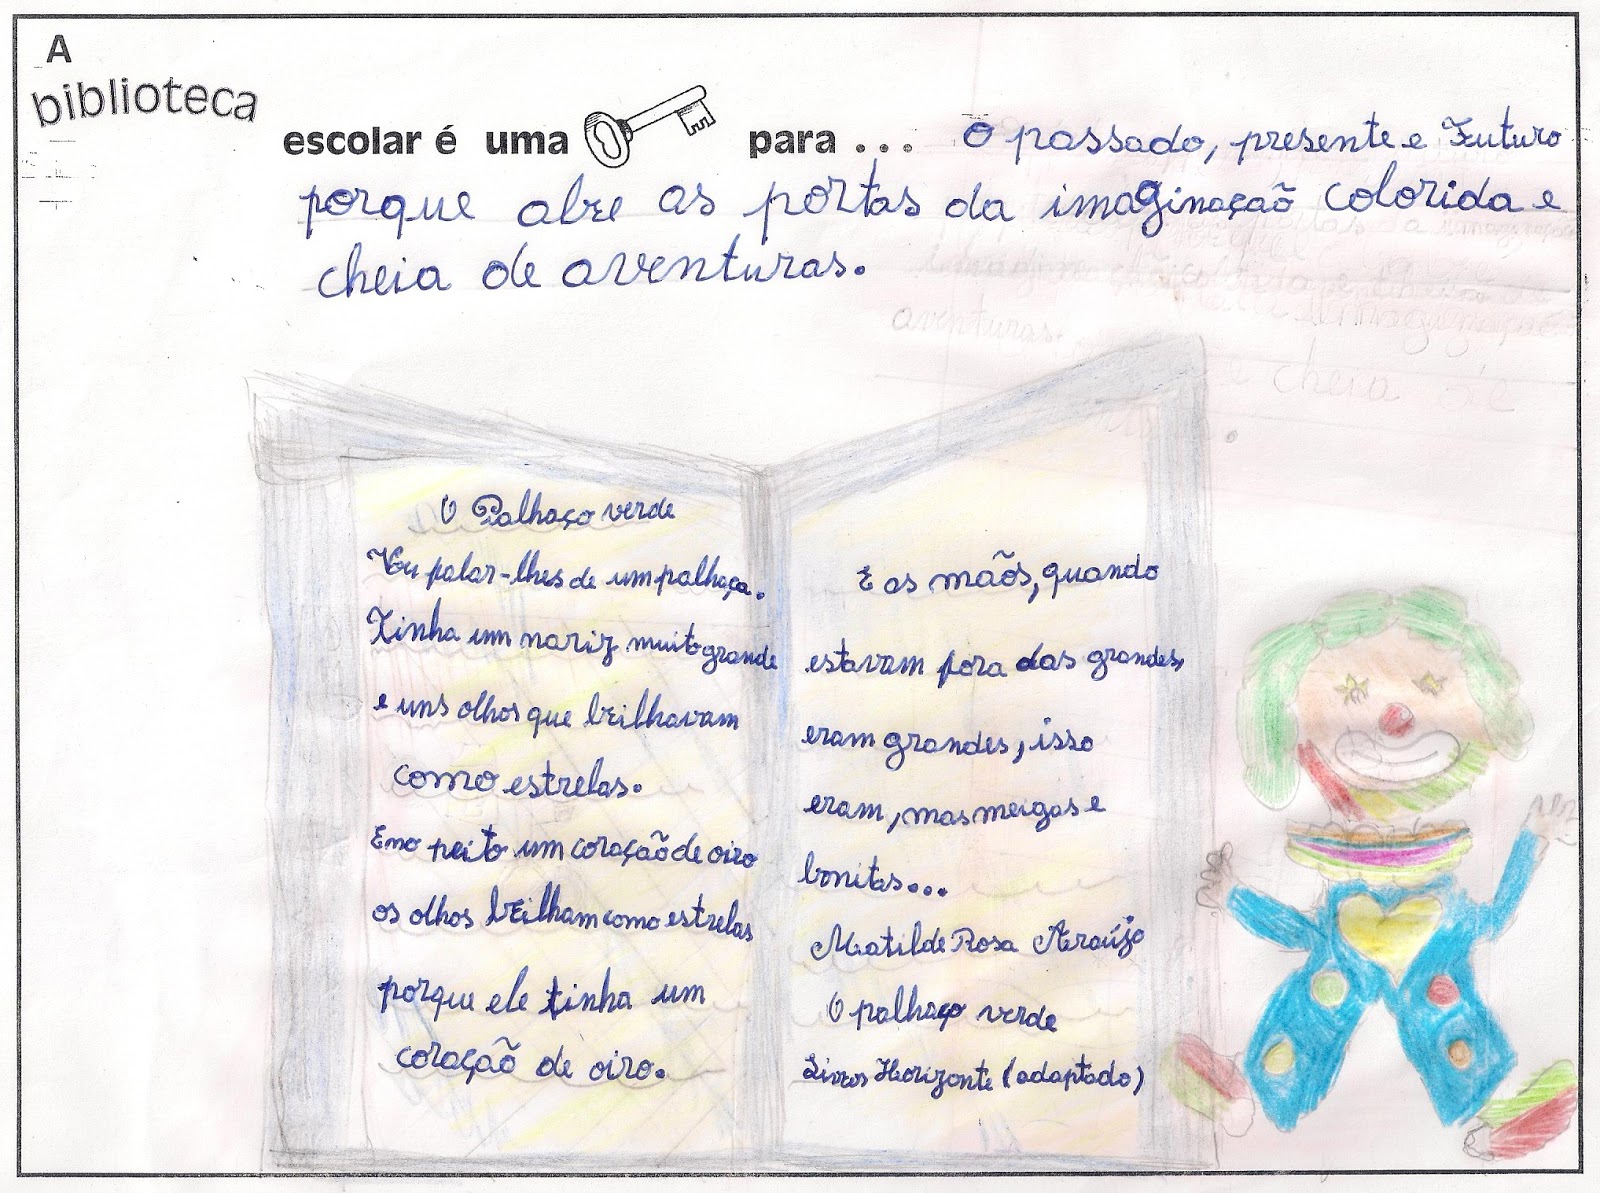 A
biblioteca
escolar é uma para ... o passado, presente e Futuro
porque abre as portas da imaginação colorida e
cheia de aventuras.
O Palhaço verde
Vou palar-lhes de um palhaça.
Tinha um nariz muito grande
e uns olhos que brilhavam
como estrelas.
E no peito um coração de oiro
os olhos brilham como estrelas
porque ele tinha um
coração de oiro.
E as mãos, quando
estavam fora das grandes,
eram grandes, isso
eram, mas meigas e
bonitas...
Matilde Rosa Araújo
O palhaço verde
Livros Horizonte (adaptado)